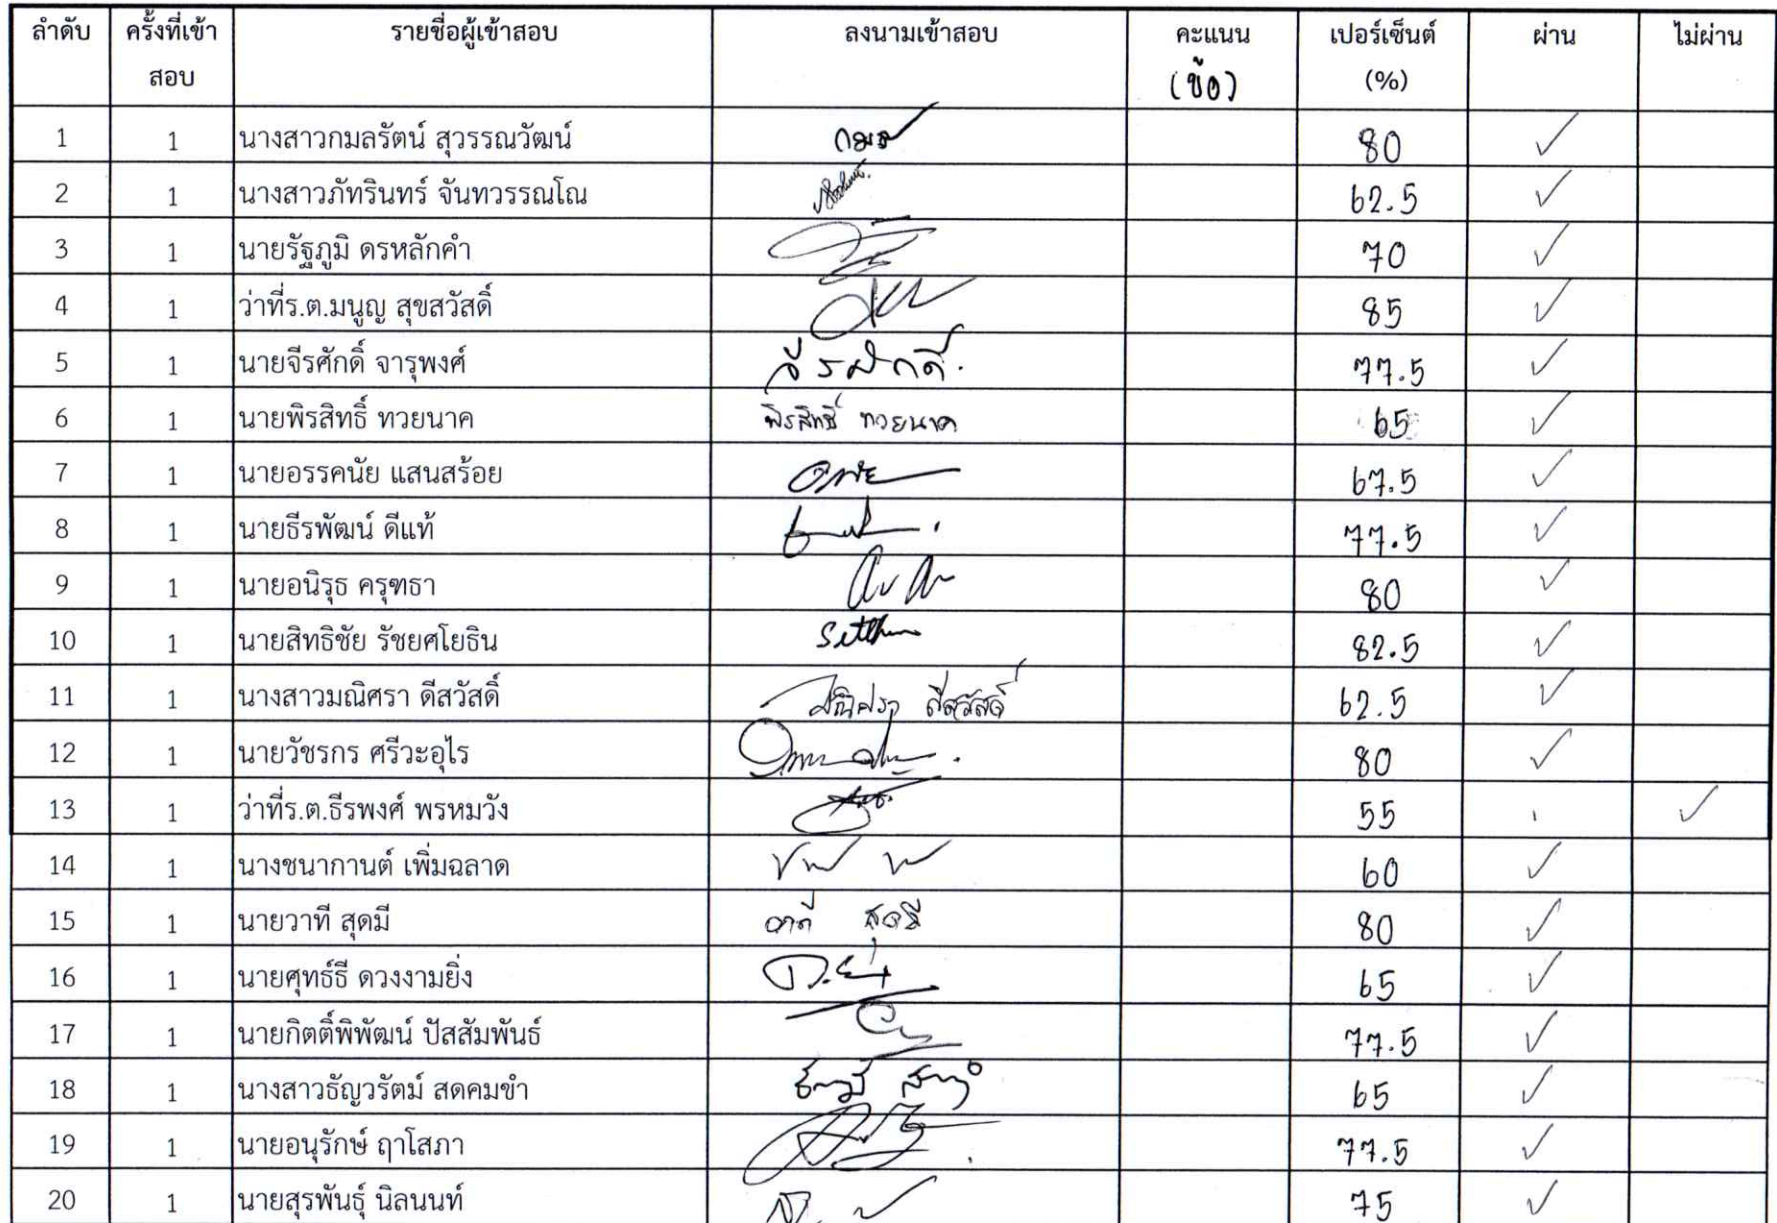 ลำดับ ครั้งที่เข้าสอบ รายชื่อผู้เข้าสอบ ลงนามเข้าสอบ คะแนน (ข้อ) เปอร์เซ็นต์ (%) ผ่าน ไม่ผ่าน
1 1 นางสาวกมลรัตน์ สุวรรณวัฒน์ กมล 80 ✓
2 1 นางสาวภัทรินทร์ จันทวรรณโณ 62.5 ✓
3 1 นายรัฐภูมิ ดรหลักคำ 70 ✓
4 1 ว่าที่ร.ต.มนูญ สุขสวัสดิ์ 85 ✓
5 1 นายจีรศักดิ์ จารุพงศ์ จีรศักดิ์ 77.5 ✓
6 1 นายพิรสิทธิ์ ทวยนาค พิรสิทธิ์ ทวยนาค 65 ✓
7 1 นายอรรคนัย แสนสร้อย 67.5 ✓
8 1 นายธีรพัฒน์ ดีแท้ 77.5 ✓
9 1 นายอนิรุธ ครุฑธา 80 ✓
10 1 นายสิทธิชัย รัชยศโยธิน 82.5 ✓
11 1 นางสาวมณิศรา ดีสวัสดิ์ มณิศรา ดีสวัสดิ์ 62.5 ✓
12 1 นายวัชรกร ศรีวะอุไร 80 ✓
13 1 ว่าที่ร.ต.ธีรพงศ์ พรหมวัง 55 ✓
14 1 นางชนากานต์ เพิ่มฉลาด 60 ✓
15 1 นายวาที สุดมี วาที สุดมี 80 ✓
16 1 นายศุทธ์ธี ดวงงามยิ่ง 65 ✓
17 1 นายกิตติ์พิพัฒน์ ปัสสัมพันธ์ 77.5 ✓
18 1 นางสาวธัญวรัตม์ สดคมขำ 65 ✓
19 1 นายอนุรักษ์ ฤาโสภา 77.5 ✓
20 1 นายสุรพันธุ์ นิลนนท์ 75 ✓